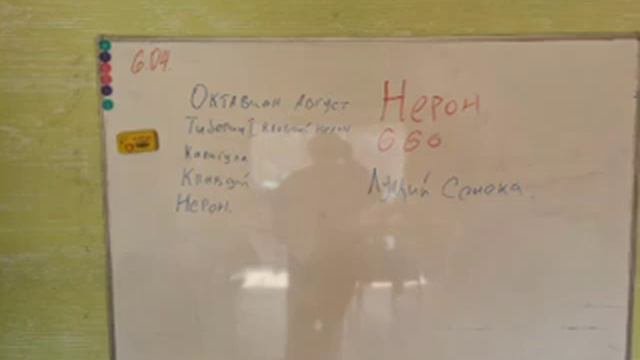 6.04.
Октавиан Август
Тиберий I Клавдий Нерон
Калигула
Клавдий
Нерон.
Нерон
Луций Сенека.